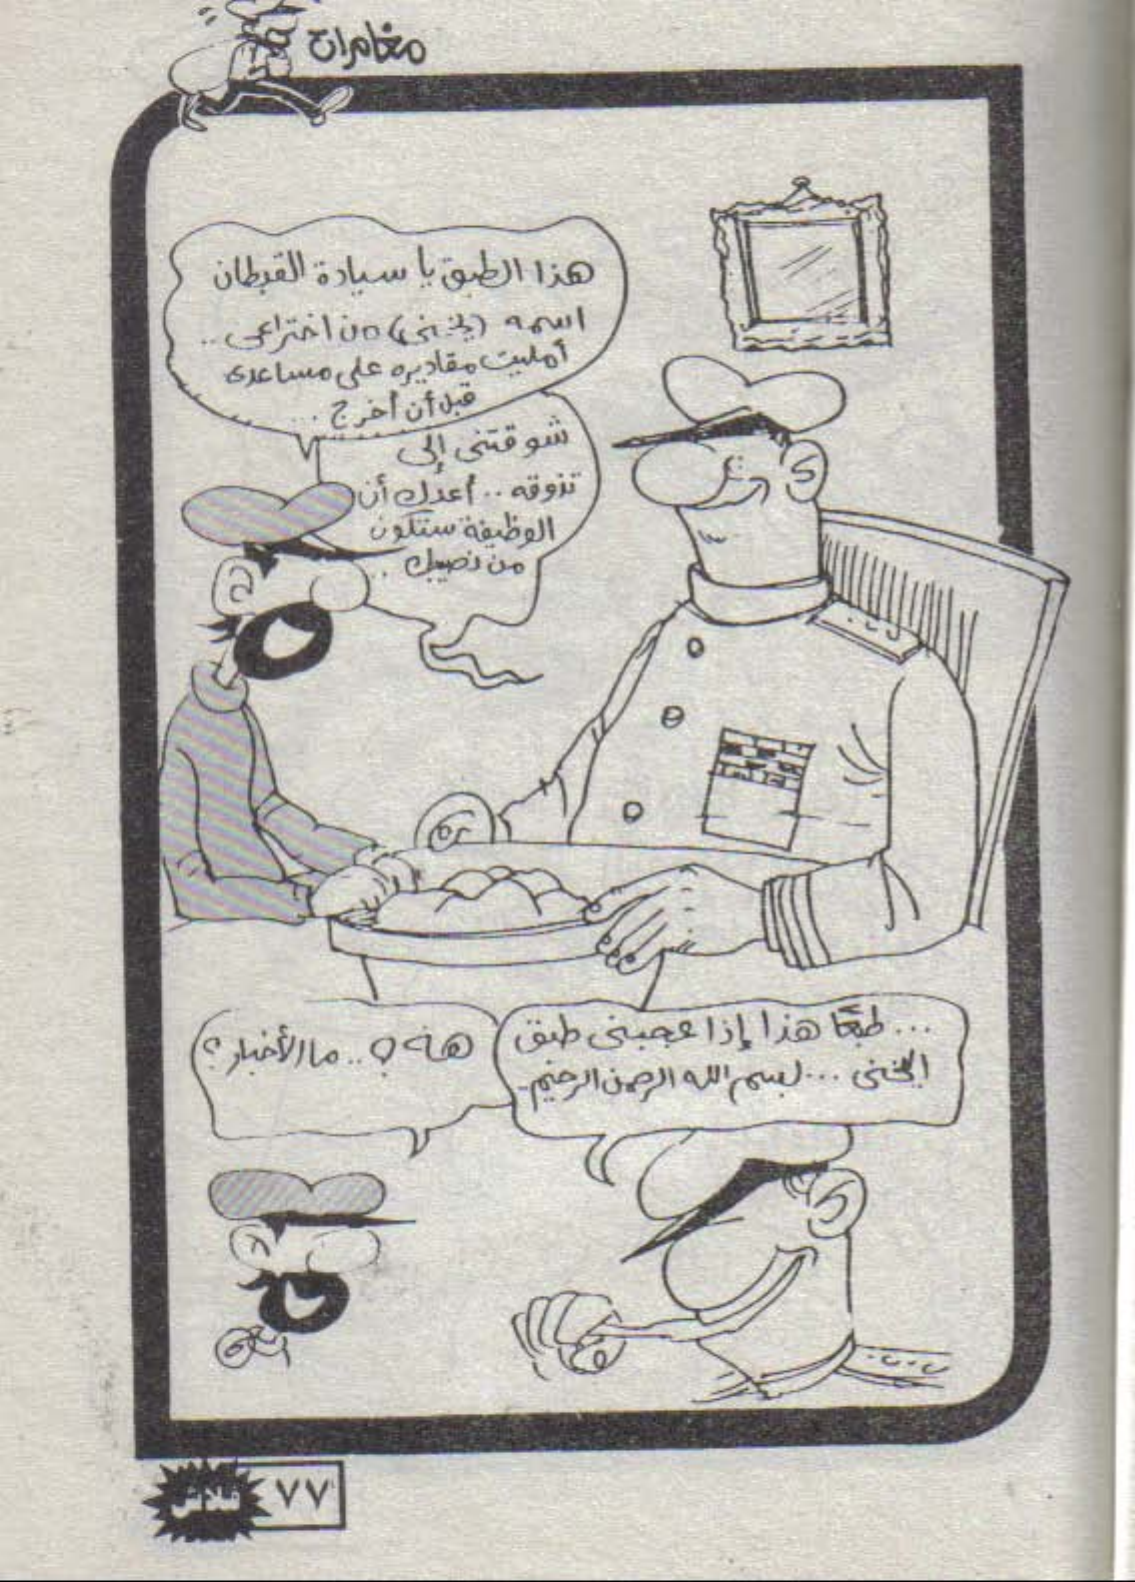 مغامرات
هذا الطبق يا سيادة القبطان
اسمه (يخني) من اختراعى ..
أمليت مقاديره على مساعدى
قبل أن أخرج ...
شوقتنى إلى
تذوقه .. أعدك أن
الوظيفة ستكون
من نصيبك ..
... طبعًا هذا إذا عجبنى طبق
... لبسم الله الرحمن الرحيم.
هه ؟ .. ما الأخبار ؟
فلاش
٧٧